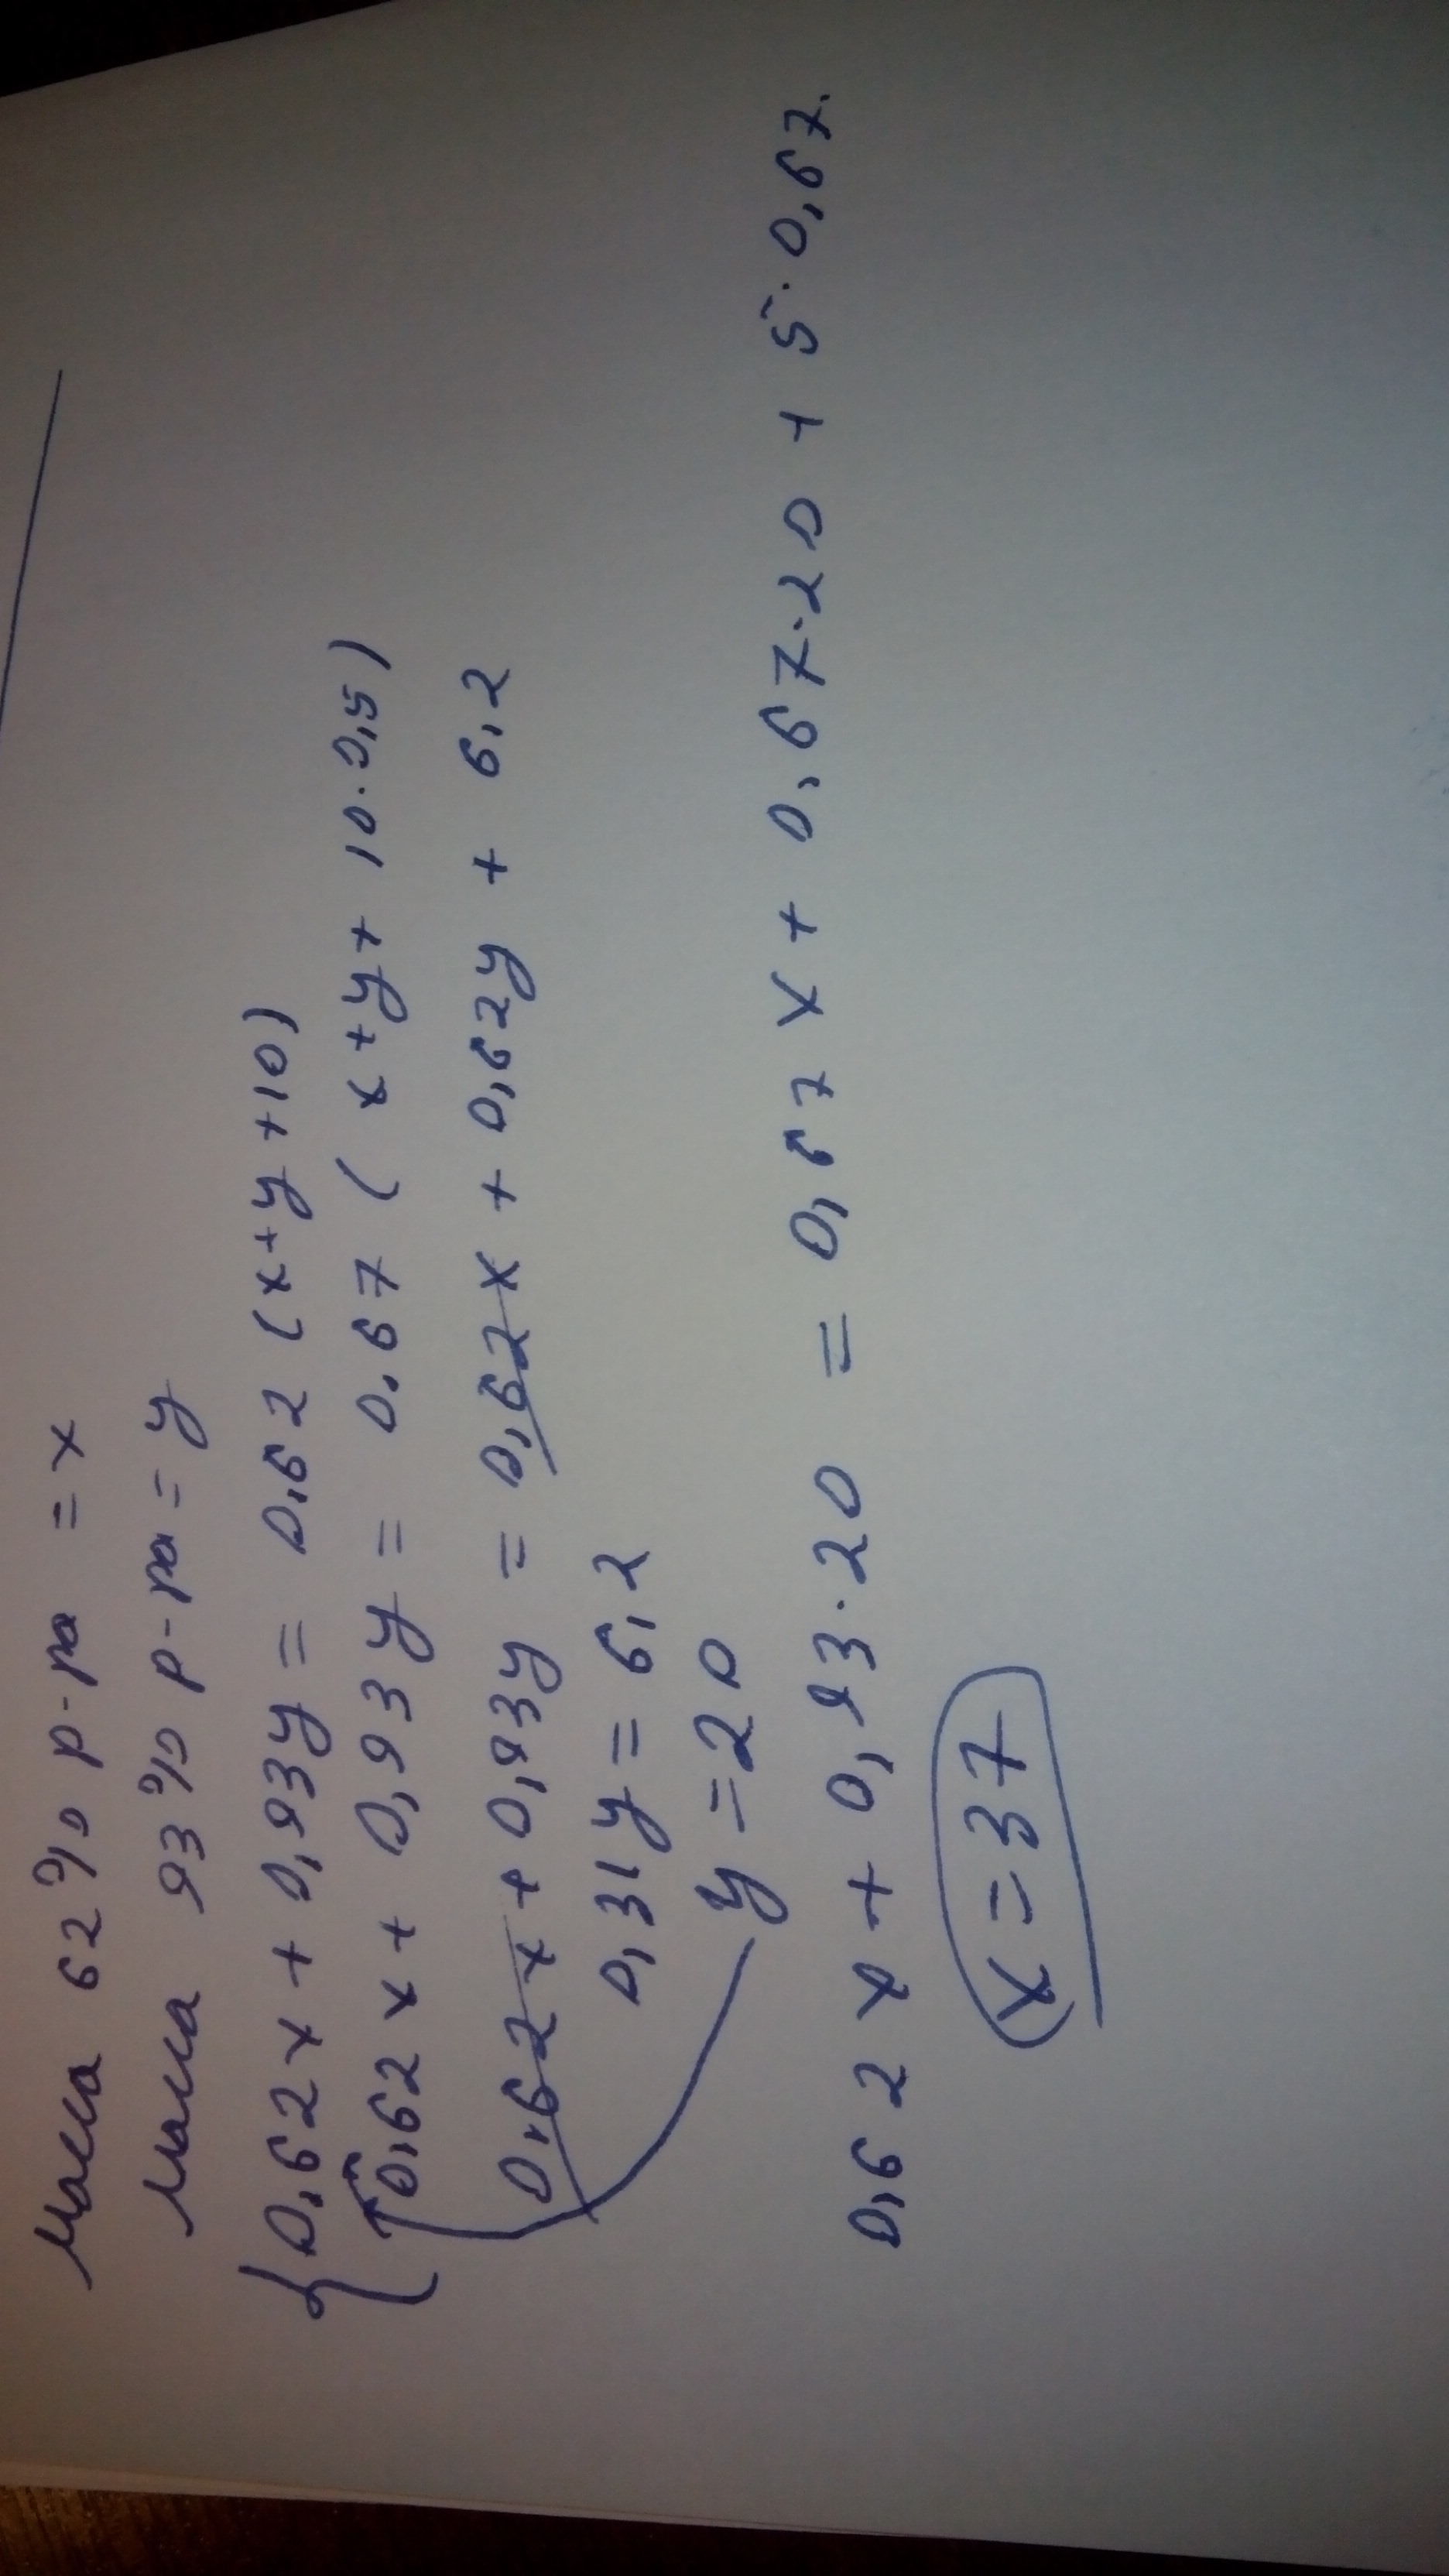 Масса 62% р-ра = x
Масса 93% р-ра = y
{0,62x + 0,93y = 0,62 (x+y+10)
0,62x + 0,93y = 0,67 (x+y+10·0,5)
0,62x + 0,93y = 0,62x + 0,62y + 6,2
0,31y = 6,2
y = 20
0,62x + 0,93·20 = 0,67x + 0,67·20 + 5·0,67.
x = 37